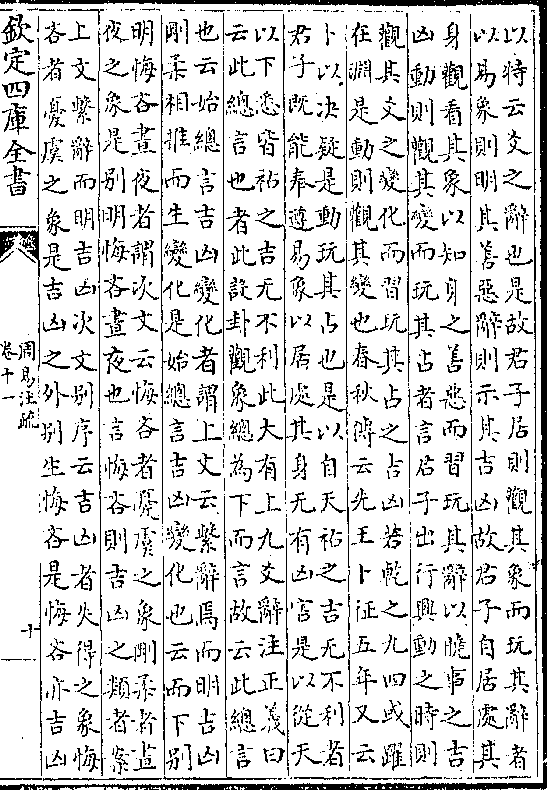 以特云爻之辭也是故君子居則觀其象而玩其辭者
以易象則明其善惡辭則示其吉凶故君子自居處其
身觀看其象以知身之善惡而習玩其辭以曉事之吉
凶動則觀其變而玩其占者言君子出行興動之時則
觀其爻之變化而習玩其占之吉凶若乾之九四或躍
在淵是動則觀其變也春秋傳云先王卜征五年又云
卜以決疑是動玩其占也是以自天祐之吉无不利者
君子既能奉遵易象以居處其身无有凶害是以從天
以下悉皆祐之吉无不利此大有上九爻辭注正義曰
云此總言也者此設卦觀象總為下而言故云此總言
也云始總言吉凶變化者謂上文云繫辭焉而明吉凶
剛柔相推而生變化是始總言吉凶變化也云而下别
明悔吝晝夜者謂次文云悔吝者憂虞之象剛柔者晝
夜之象是别明悔吝晝夜也言悔吝則吉凶之類者案
上文繫辭而明吉凶次文别序云吉凶者失得之象悔
吝者憂虞之象是吉凶之外别生悔吝是悔吝亦吉凶
欽定四庫全書
周易注疏
卷十一
十